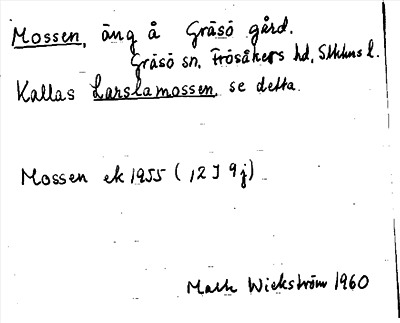 Mossen, äng å Gräsö gård.
Gräsö sn, Frösåkers hd, Sthlms l.
Kallas Larslamossen, se detta.
Mossen ek 1955 (12 J 9j)
Math Wickström 1960